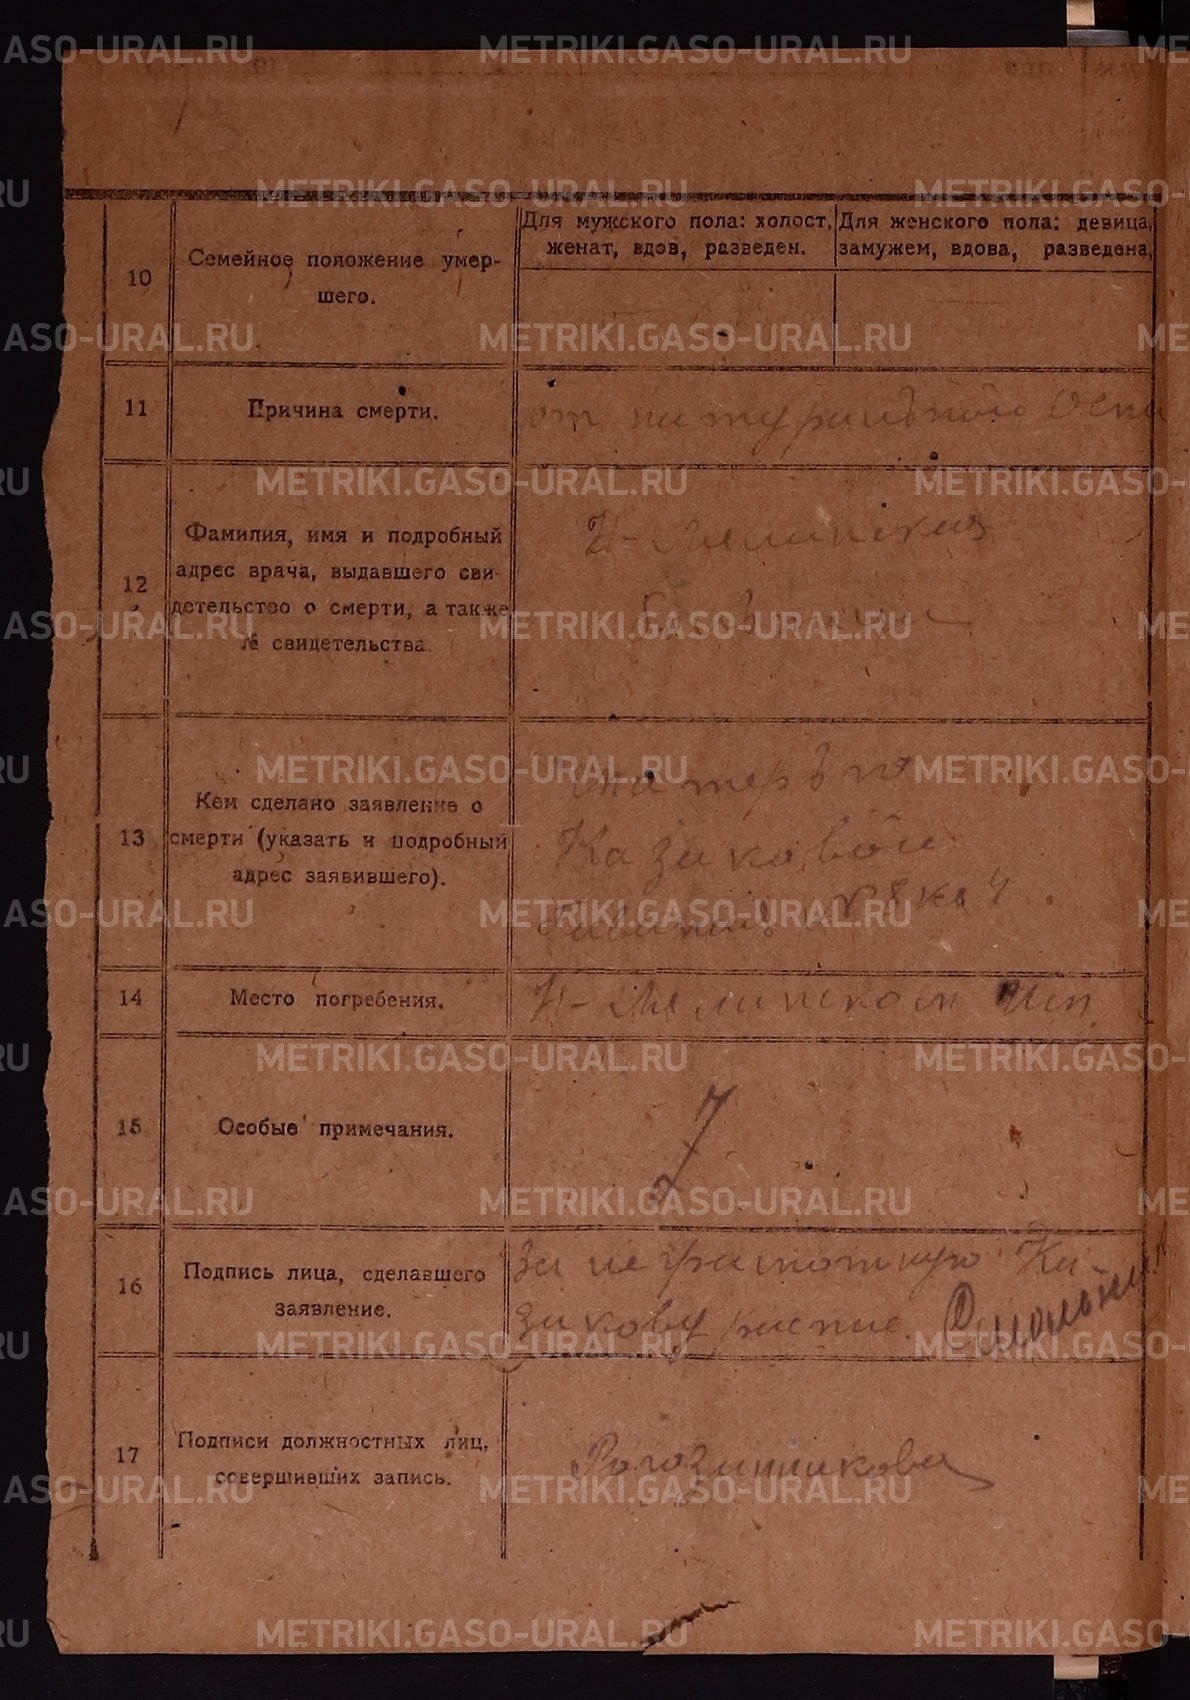 METRIKI.GASO-URAL.RU
Для мужского пола: холост, женат, вдов, разведен.
Для женского пола: девица, замужем, вдова, разведена,
10
Семейное положение умер-
шего.
11
Причина смерти.
от натуральной Оспы
12
Фамилия, имя и подробный
адрес врача, выдавшего сви-
детельство о смерти, а также
№ свидетельства.
Н-Лялинская
Больница
13
Кем сделано заявление о
смерти (указать и подробный
адрес заявившего).
матерью
Казаковой
14
Место погребения.
Н-Лялинском
15
Особые примечания.
16
Подпись лица, сделавшего
заявление.
За неграмотную Ка-
закову распис.
17
Подписи должностных лиц,
совершивших запись.
Рогозинникова